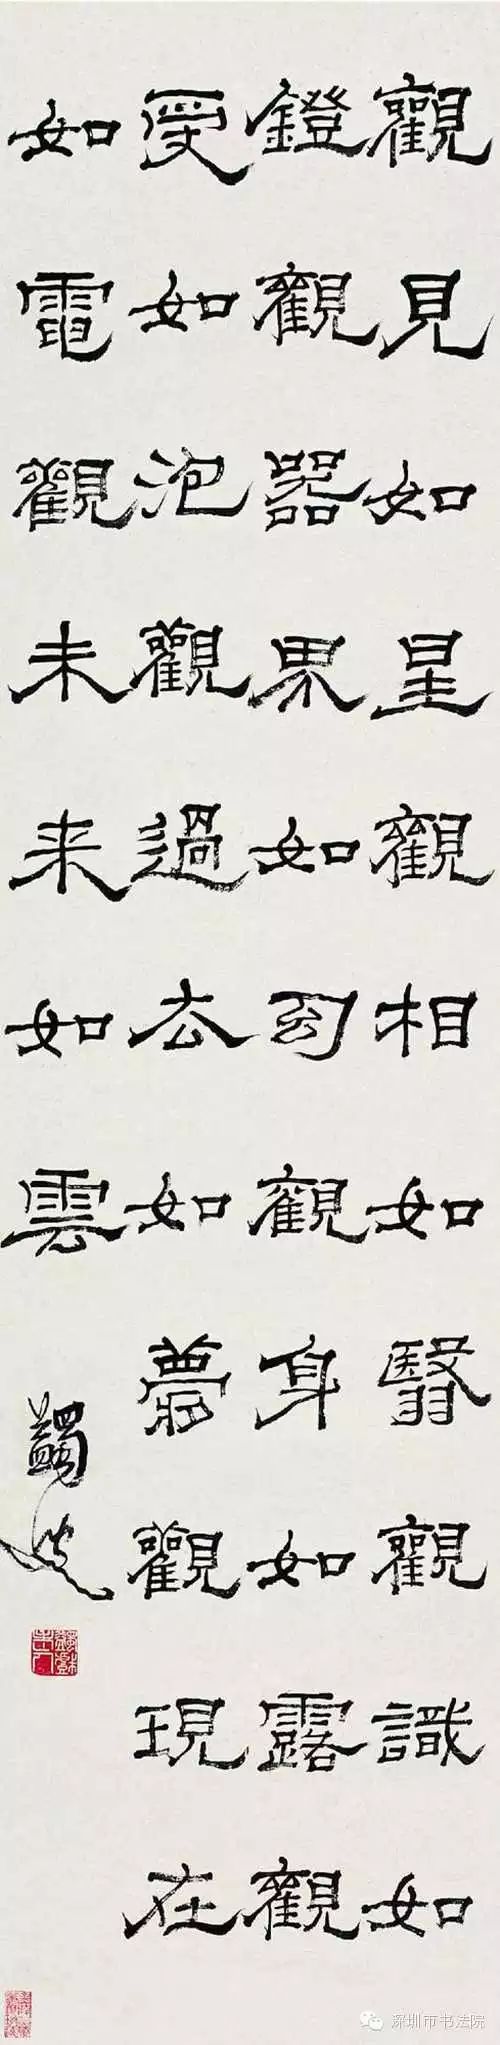 觀見如星觀相如翳觀識如
鐙觀器界如幻觀身如露觀
受如泡觀過去如夢觀現在
如電觀未来如雲
蠲叟
深圳市书法院